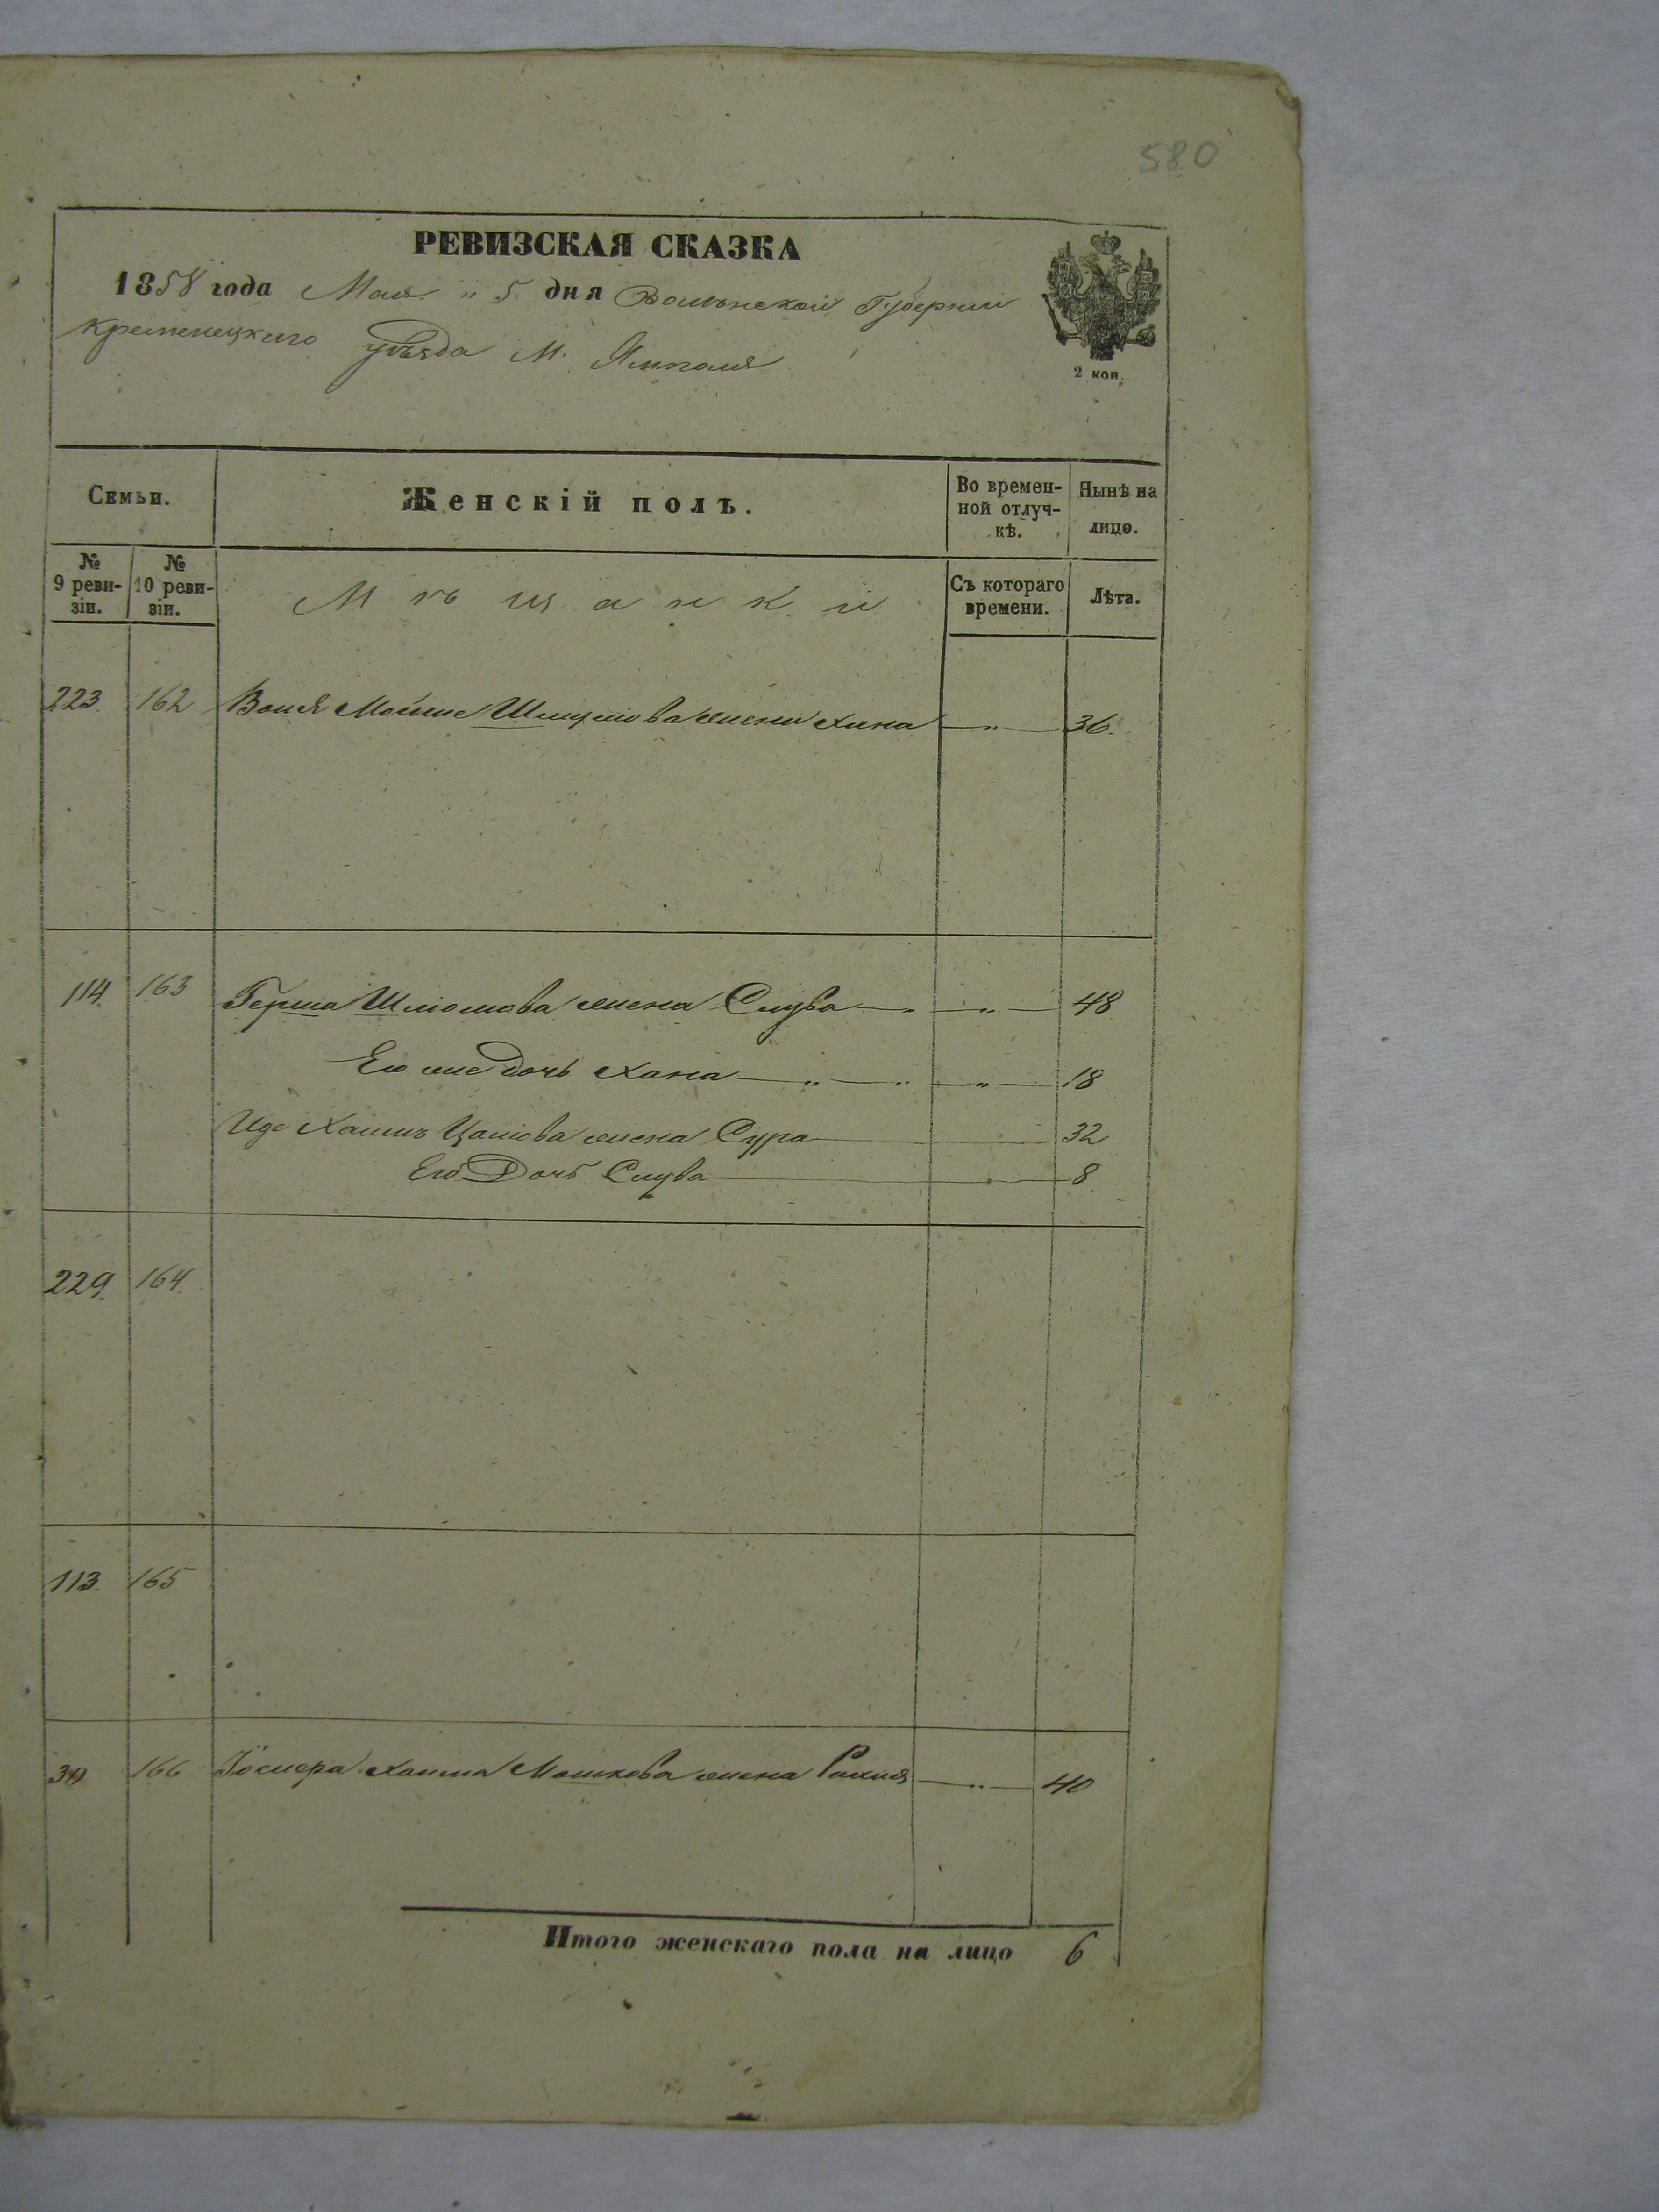 580
РЕВИЗСКАЯ СКАЗКА
1858 года Мая " 5 дня Волынской Губернии
Кременецкого уѣзда М. Ямполя
2 коп.
Семьи.
Женскій полъ.
Во времен-
ной отлуч-
кѣ.
Нынѣ на
лицо.
№
9 реви-
зіи.
№
10 реви-
зіи.
Мѣщанки
Съ котораго
времени.
Лѣта.
223. 162 Мойше Шмулева жена Хана — " — 36.
114. 163 Герша Шліомова жена Слува — " — " — 48
Его же дочь Хана — " — " — " — 18
Хаима жена Сура 32
Его Дочь Слува 8
229. 164.
113. 165
39 166 Хаима Мошкова жена — " — 40
Итого женскаго пола на лицо 6